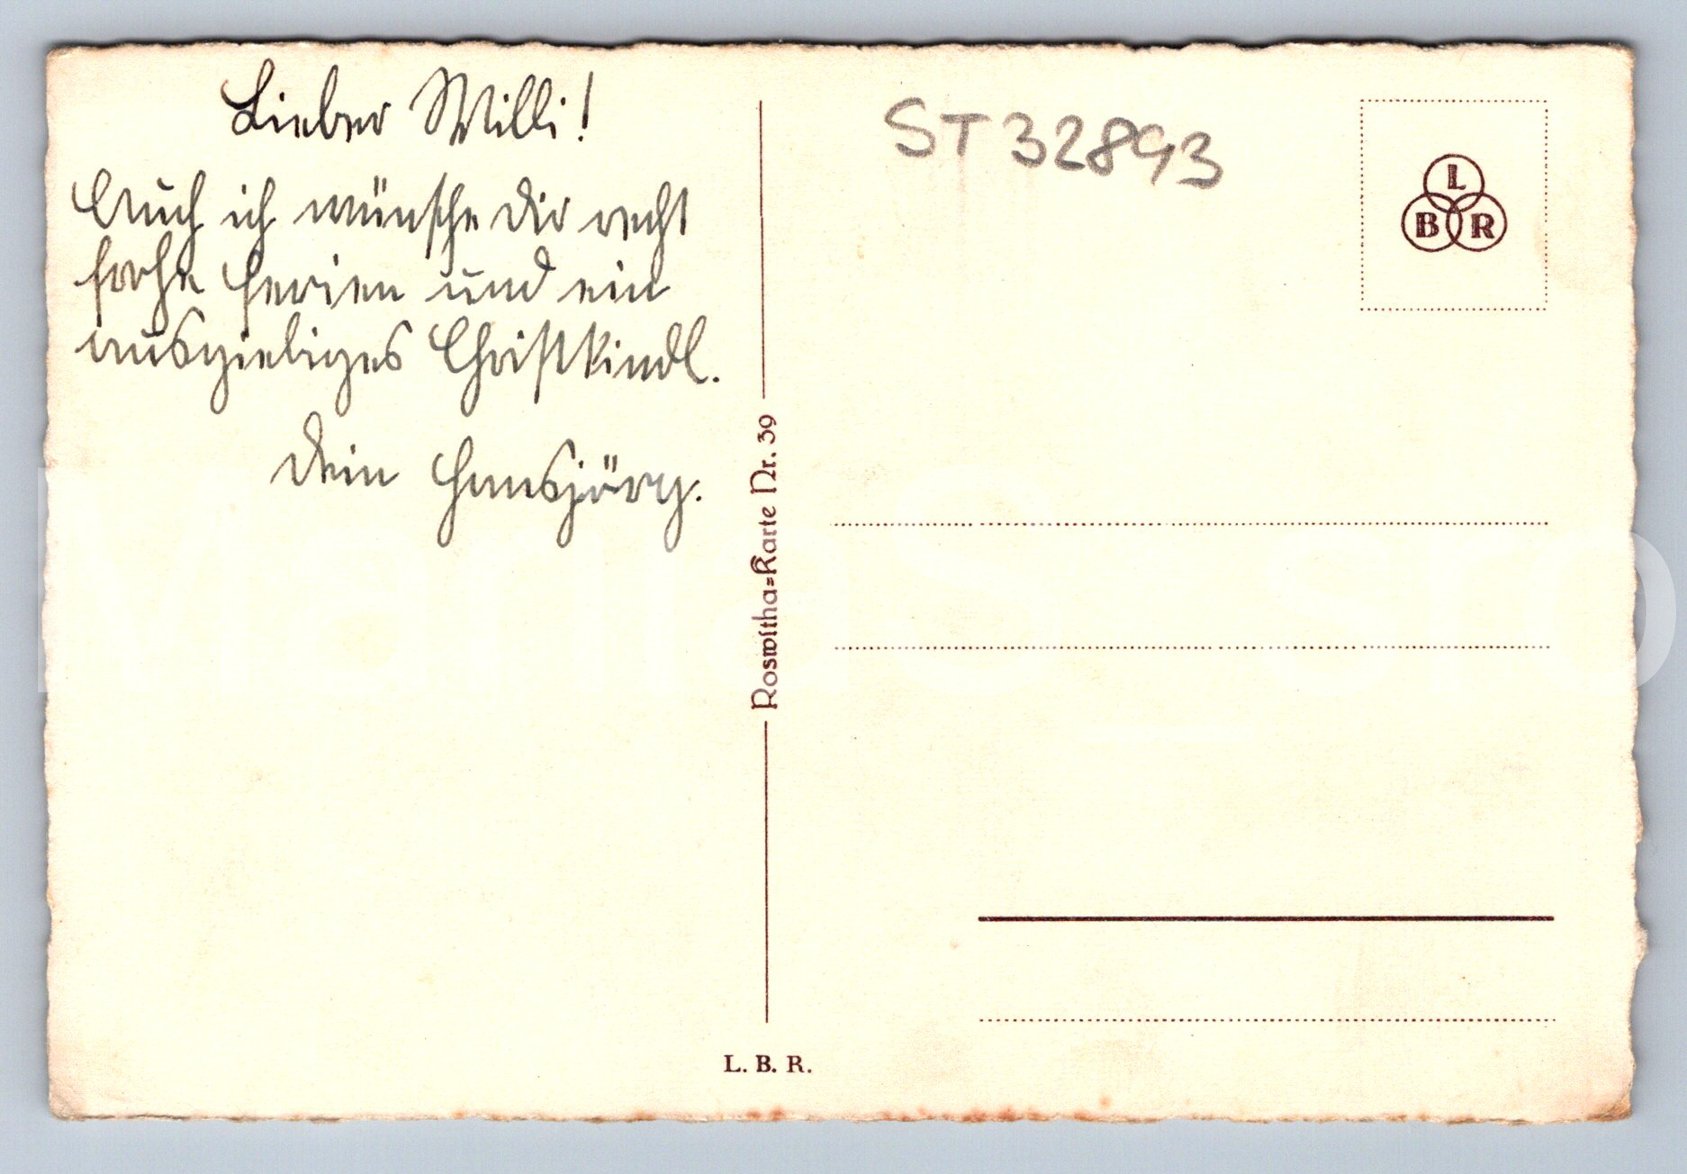 Lieber Willi!
Auch ich wünsche Dir recht
frohe Ferien und ein
ausgiebiges Christkindl.
Dein Hansjörg.
ST 32893
L
B R
Roswitha=Karte Nr. 39
L. B. R.